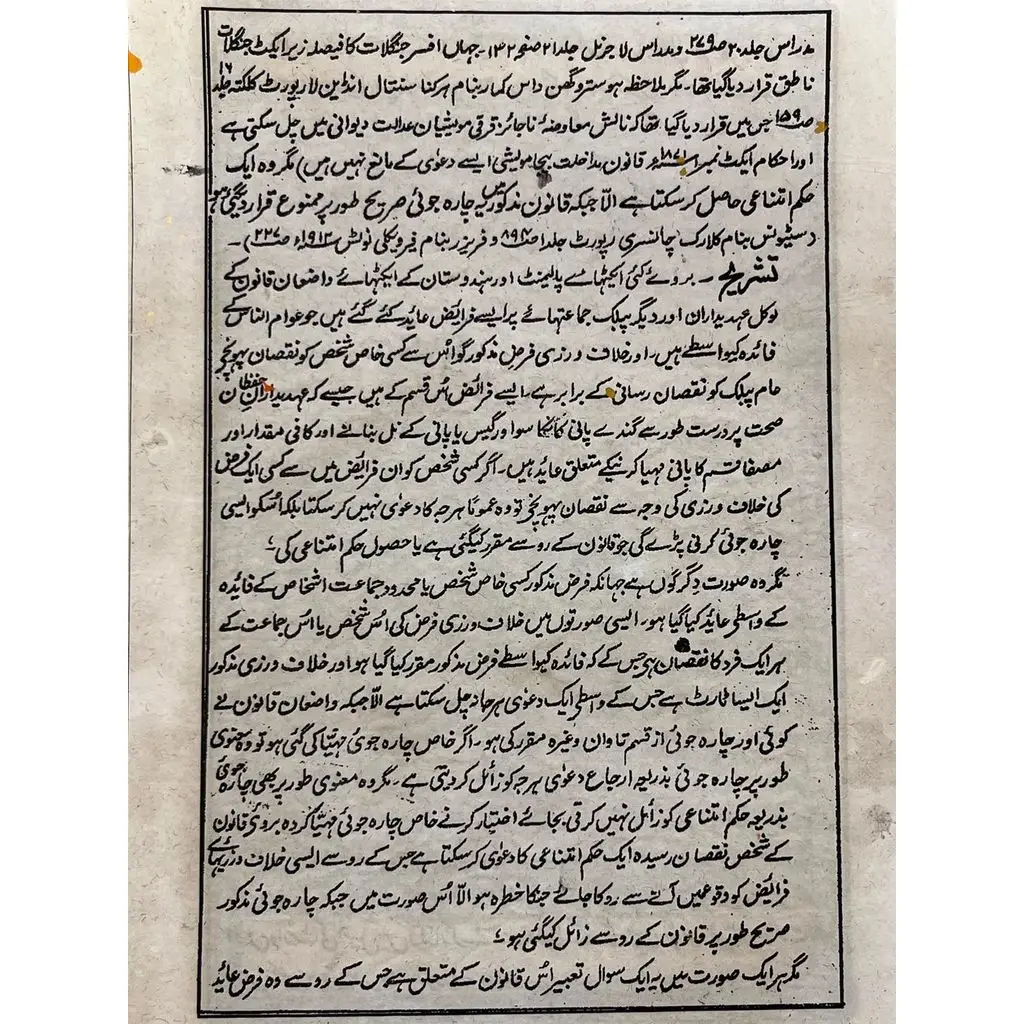 مدراس جلد ۲۰ صـ ۲۷۹ ومدراس لا جرنل جلد ۲۱ صفحہ ۱۴۲۔ جہاں افسر جنگلات کا فیصلہ زیر ایکٹ جنگلات
ناطق قرار دیا گیا تھا۔ مگر بلاحظہ ہو ستروگھن داس کمار بنام ہرکنا سنتال انڈین لا رپورٹ کلکتہ جلد ۱۶
صـ ۱۵۹ جس میں قرار دیا گیا تھا کہ نالش معاوضۂ ناجائز قرقی مویشیان عدالت دیوانی میں چل سکتی ہے
اور احکام ایکٹ نمبر ۱ ۱۸۷۱ء قانون مداخلت بیجا مویشی ایسے دعوٰی کے مانع نہیں ہیں) مگر وہ ایک
حکم امتناعی حاصل کر سکتا ہے الّا جبکہ قانون مذکور میں یہ چارہ جوئی صریح طور پر ممنوع قرار دیگئی ہو
(سٹیونس بنام کلارک چانسری رپورٹ جلد ۱ صـ ۸۹۴ و فریزر بنام فیر ویکلی نوٹس ۱۹۱۲ء صـ ۲۲۷)۔
تشریح۔ بروئے کئی ایکٹہائے پارلیمنٹ اور ہندوستان کے ایکٹہائے واضعان قانون کے
لوکل عہدیداران اور دیگر پبلک جماعتہائے پر ایسے فرائض عائد کئے گئے ہیں جو عوام الناس کے
فائدہ کیواسطے ہیں۔ اور خلاف ورزی فرض مذکور گو اُس سے کسی خاص شخص کو نقصان پہونچے
عام پبلک کو نقصان رسانی کے برابر ہے۔ ایسے فرائض اُس قسم کے ہیں جیسے کہ عہدیداران حفظان
صحت پر درست طور سے گندے پانی کا نکاسو اور گیس یا پانی کے نل بنانے اور کافی مقدار اور
مصفا قسم کا پانی مہیا کرنیکے متعلق عائد ہیں۔ اگر کسی شخص کو ان فرائض میں سے کسی ایک فرض
کی خلاف ورزی کی وجہ سے نقصان پہونچے تو وہ عمومًا ہرجہ کا دعوٰی نہیں کر سکتا بلکہ اُسکو ایسی
چارہ جوئی کرنی پڑے گی جو قانون کے رو سے مقرر کیگئی ہے یا حصول حکم امتناعی کی ؛
مگر وہ صورت دِگرگوں ہے جہانکہ فرض مذکور کسی خاص شخص یا محدود جماعت اشخاص کے فائدہ
کے واسطے عائد کیا گیا ہو۔ ایسی صورتوں میں خلاف ورزی فرض کی اُس شخص یا اُس جماعت کے
ہر ایک فرد کا نقصان ہے جس کے کہ فائدہ کیواسطے فرض مذکور مقرر کیا گیا ہو اور خلاف ورزی مذکور
ایک ایسا ٹارٹ ہے جس کے واسطے ایک دعوٰی ہرجانہ چل سکتا ہے الّا جبکہ واضعان قانون نے
کوئی اور چارہ جوئی از قسم تاوان وغیرہ مقرر کی ہو۔ اگر خاص چارہ جوئی مہیّا کی گئی ہو تو وہ معنوی
طور پر چارہ جوئی بذریعہ ارجاع دعوٰی ہرجہ کو زائل کر دیتی ہے۔ مگر وہ معنوی طور پر بھی چارہ جوئی
بذریعہ حکم امتناعی کو زائل نہیں کرتی بجائے اختیار کرنے خاص چارہ جوئی مہیّا کردہ بروئے قانون
کے شخص نقصان رسیدہ ایک حکم امتناعی کا دعوٰی کر سکتا ہے جس کے رو سے ایسی خلاف ورزیہائے
فرائض کو وقوعمیں آنے سے روکا جائے جنکا خطرہ ہو الّا اُس صورت میں جبکہ چارہ جوئی مذکور
صریح طور پر قانون کے رو سے زائل کیگئی ہو ؛
مگر ہر ایک صورت میں یہ ایک سوال تعبیر اُس قانون کے متعلق ہے جس کے رو سے وہ فرض عائد